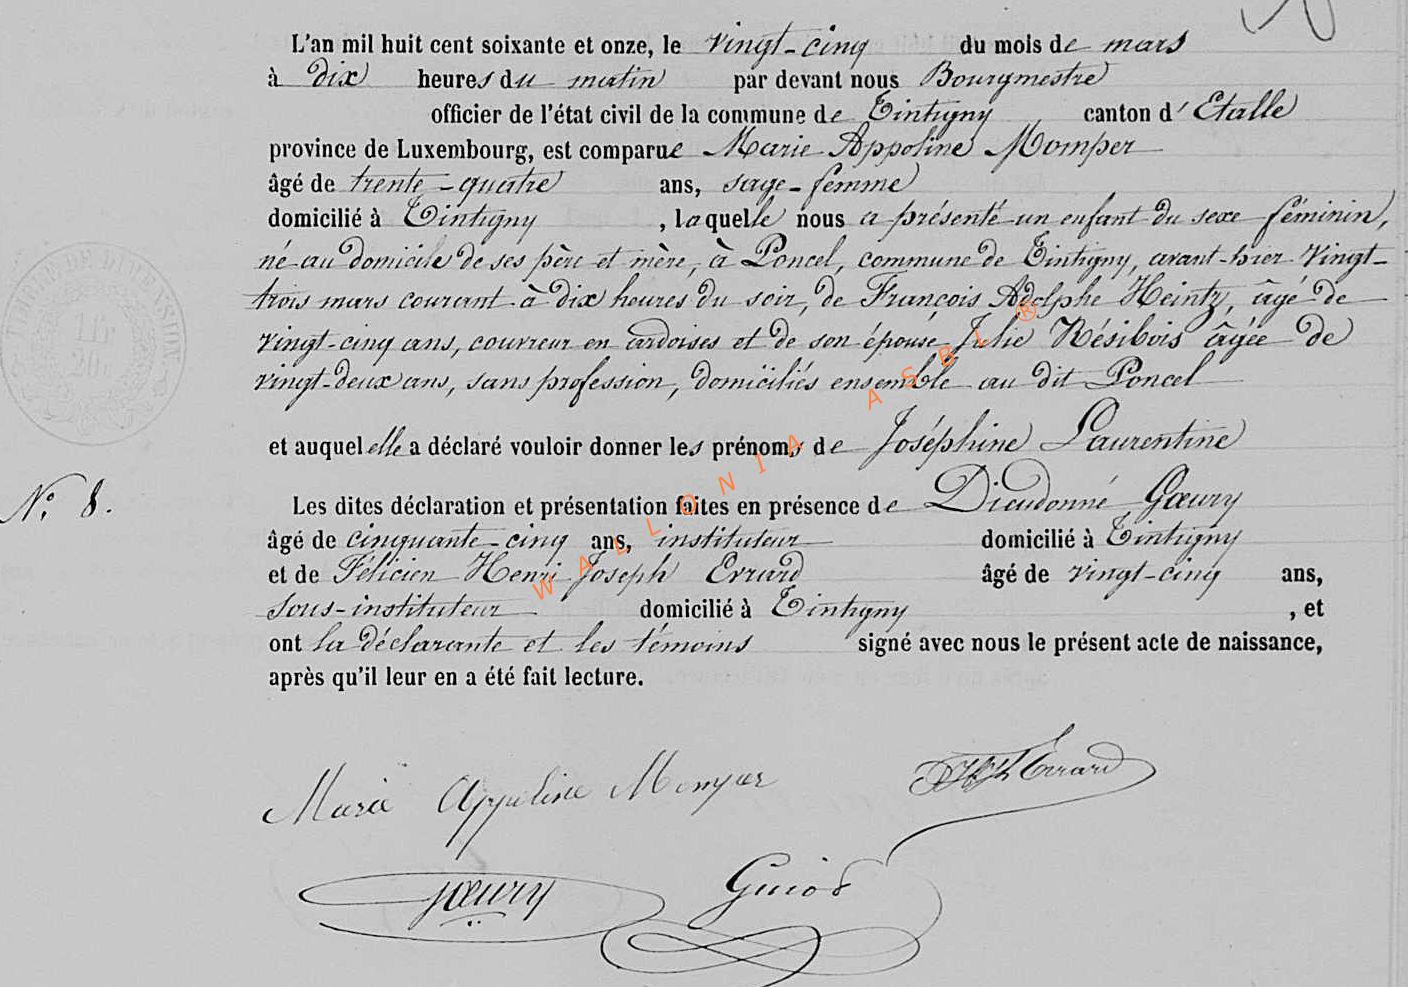 L'an mil huit cent soixante et onze, le vingt-cinq du mois de mars
à dix heures du matin par devant nous Bourgmestre
officier de l'état civil de la commune de Tintigny canton d'Etalle
province de Luxembourg, est comparue Marie Appoline Momper
âgé de trente-quatre ans, sage-femme
domicilié à Tintigny, laquelle nous a présenté un enfant du sexe féminin,
né au domicile de ses père et mère, à Poncel, commune de Tintigny, avant-hier vingt-
trois mars courant à dix heures du soir, de François Adolphe Heintz, âgé de
vingt-cinq ans, couvreur en ardoises et de son épouse, Julie Résibois âgée de
vingt-deux ans, sans profession, domiciliés ensemble au dit Poncel
et auquel elle a déclaré vouloir donner les prénoms de Joséphine Laurentine
N° 8.
Les dites déclaration et présentation faites en présence de Dieudonné Gœury
âgé de cinquante-cinq ans, instituteur domicilié à Tintigny
et de Félicien Henri Joseph Errard âgé de vingt-cinq ans,
sous-instituteur domicilié à Tintigny, et
ont la déclarante et les témoins signé avec nous le présent acte de naissance,
après qu'il leur en a été fait lecture.
Marie Appoline Momper
Errard
Gœury Guiot
WALLONIA ASBL ®
TIMBRE DE DIMENSION
1 fr
20